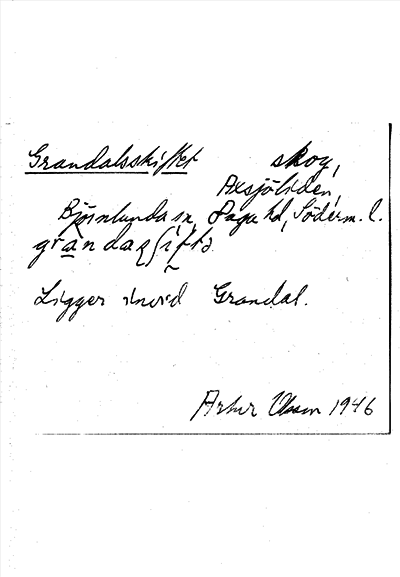 Grandalsskiftet skog,
Axsjöliden,
Björnlunda sn, Daga hd, Söderm. l.
Ligger invid Grandal.
Artur Olsson 1946